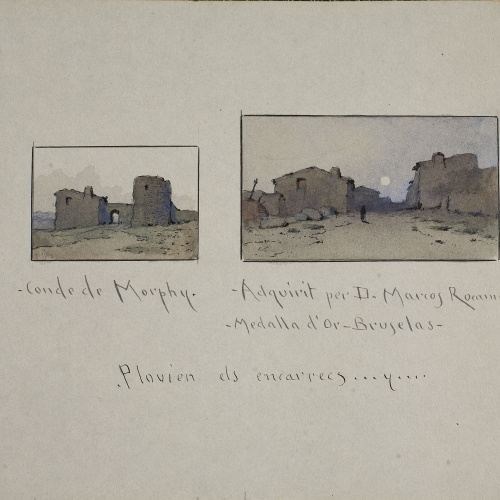 -Conde de Morphy.
-Adquirit per D. Marcos
-Medalla d'Or-Bruselas-
Plovien els encarrecs...y....